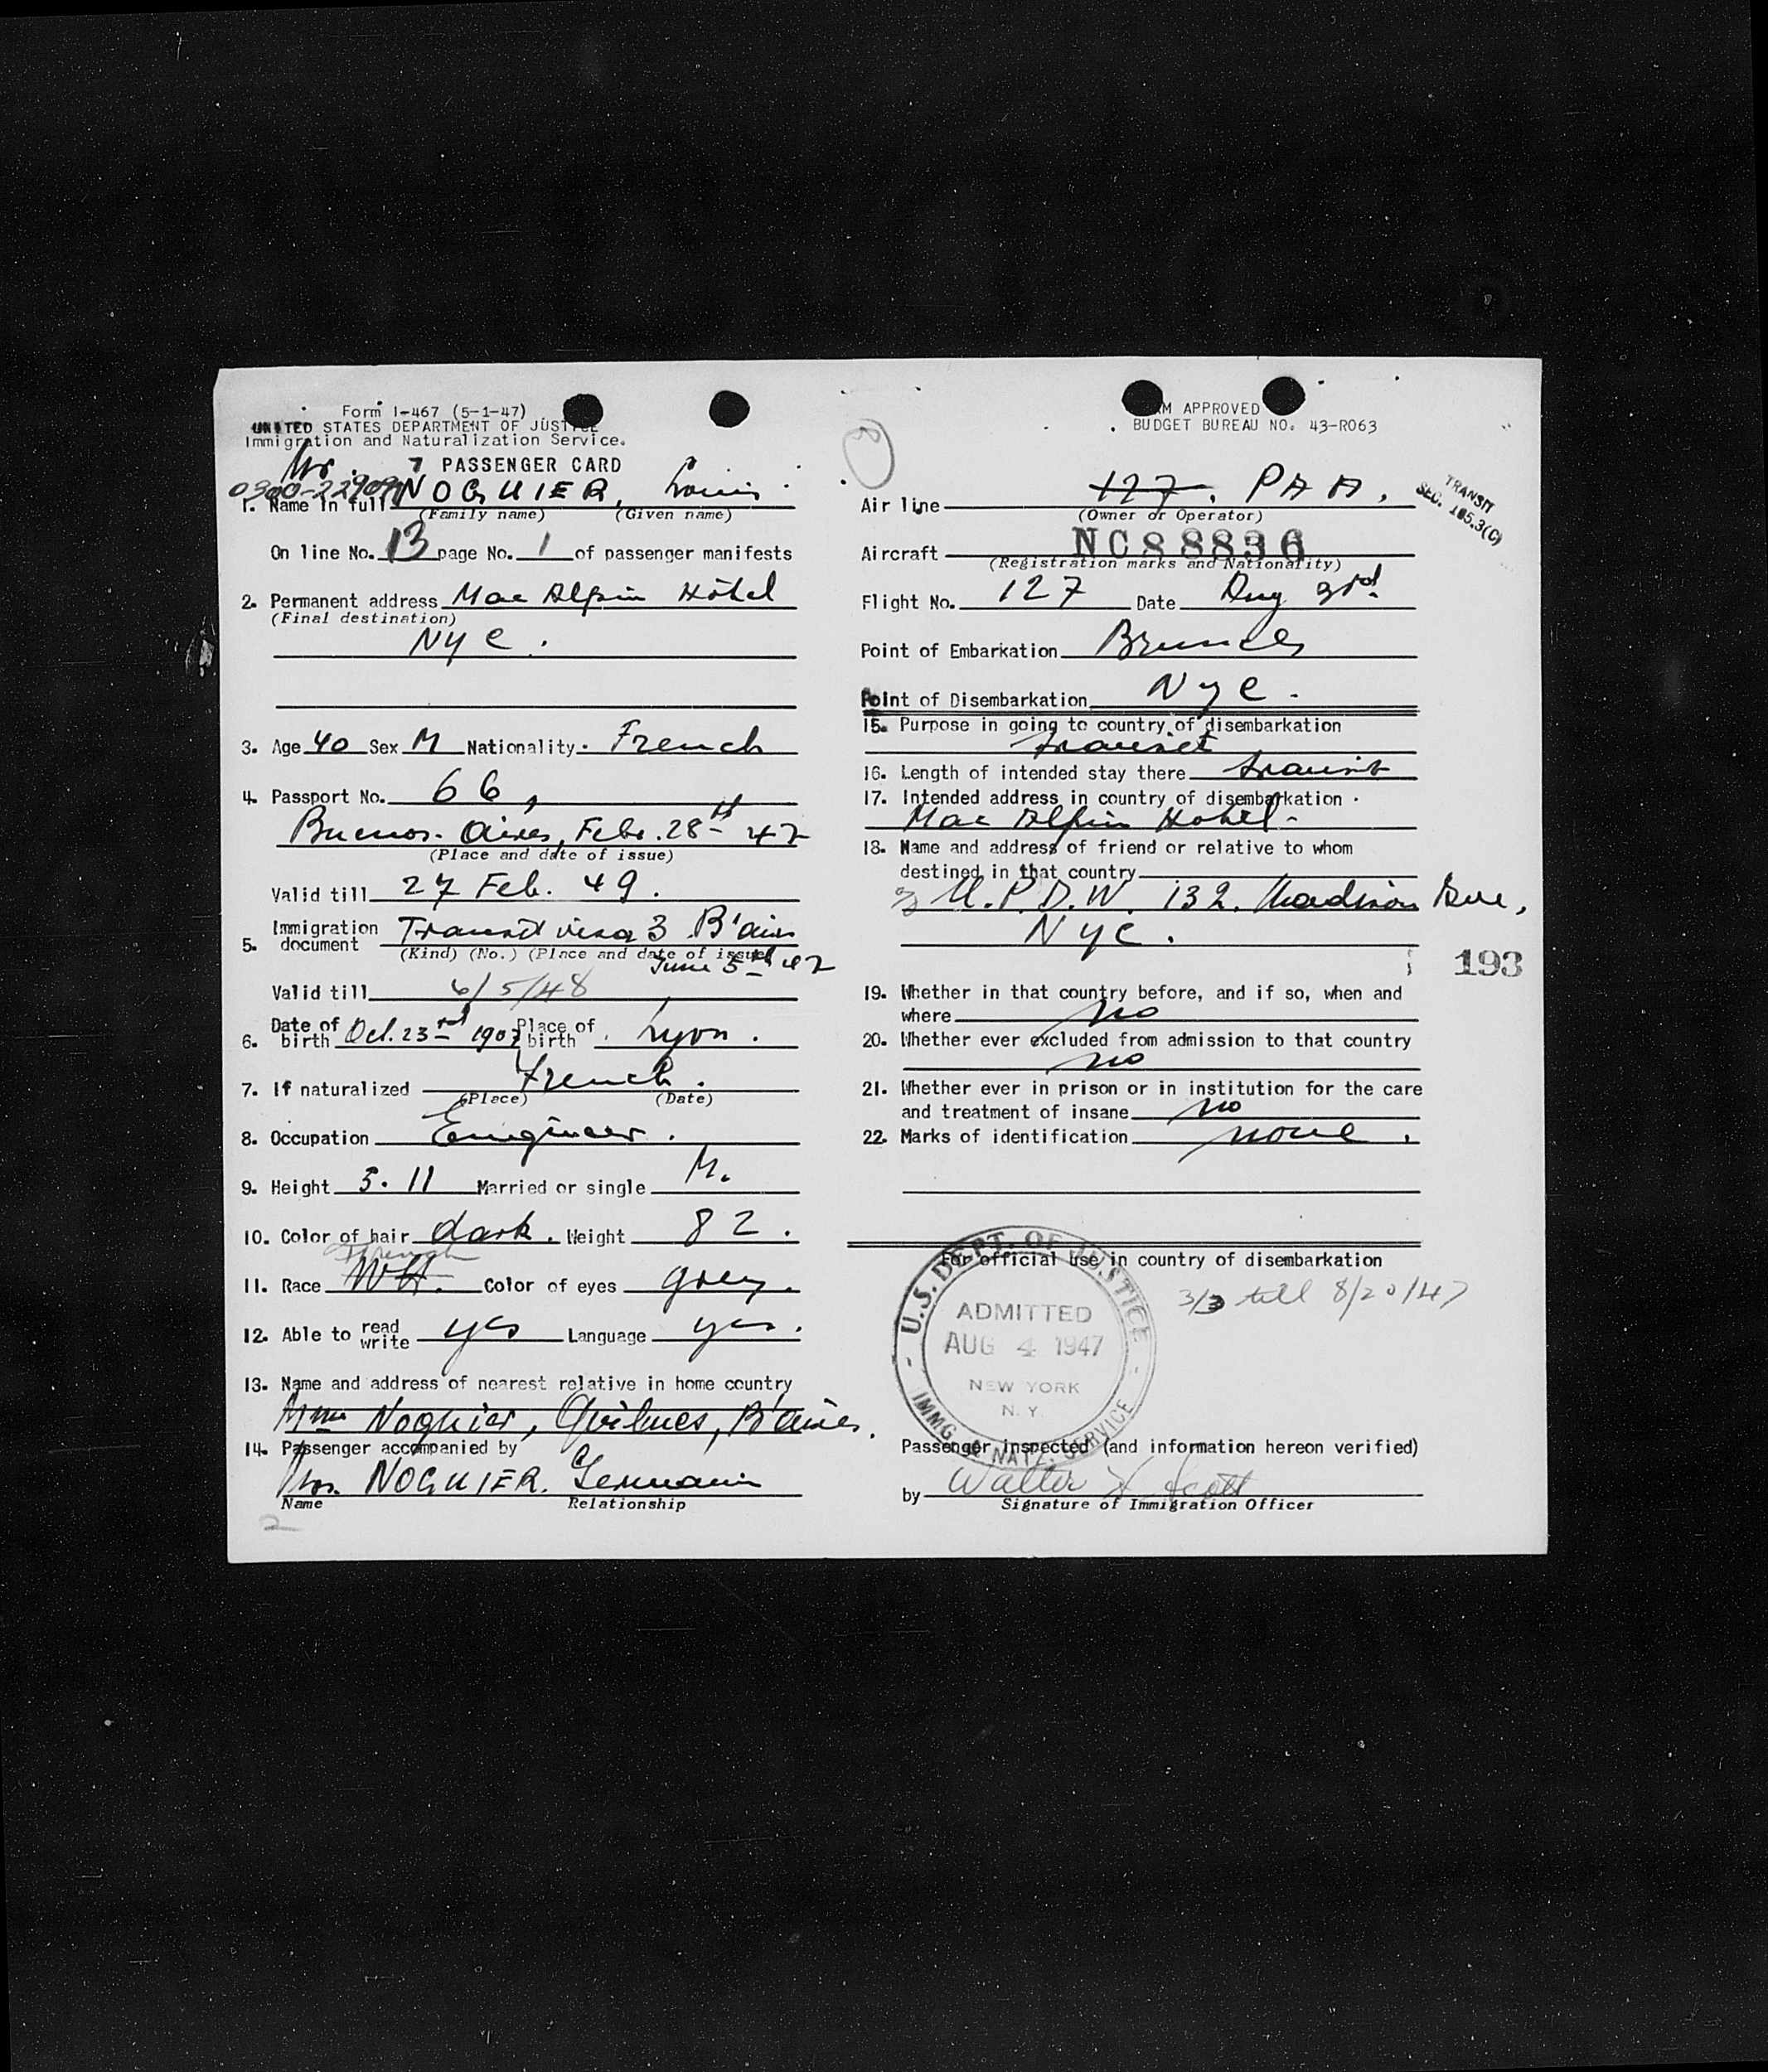 Form I-467 (5-1-47)
UNITED STATES DEPARTMENT OF JUSTICE
Immigration and Naturalization Service.
Mr. 7 PASSENGER CARD
0300-22909
1. Name in full NOGUIER, Louis
(Family name) (Given name)
On line No. 13 page No. 1 of passenger manifests
2. Permanent address Mac Alpin Hôtel
(Final destination)
NYC.
3. Age 40 Sex M Nationality. French
4. Passport No. 66,
Buenos-Aires, Feb. 28th 47
(Place and date of issue)
Valid till 27 Feb. 49.
5. Immigration document Transit visa 3 B'aires
(Kind) (No.) (Place and date of issue)
June 5th 47
Valid till 6/5/48
6. Date of birth Oct. 23rd 1907 Place of birth Lyon.
7. If naturalized French.
(Place) (Date)
8. Occupation Engineer.
9. Height 5.11 Married or single M.
10. Color of hair dark. Weight 82.
French
11. Race WH. Color of eyes grey.
12. Able to read write yes Language yes.
13. Name and address of nearest relative in home country
Mme Noguier, Quilmes, B'aires.
14. Passenger accompanied by
Mrs. NOGUIER. Germaine
Name Relationship
2
FORM APPROVED
BUDGET BUREAU NO. 43-R063
TRANSIT
SEC. 165.3(C)
Air line 127. PAA.
(Owner or Operator)
Aircraft NC88836
(Registration marks and Nationality)
Flight No. 127 Date Aug 3rd.
Point of Embarkation Brussels
Point of Disembarkation NYC.
15. Purpose in going to country of disembarkation
transit
16. Length of intended stay there transit
17. Intended address in country of disembarkation
Mac Alpin Hotel-
18. Name and address of friend or relative to whom
destined in that country
U.P.D.W. 132. Madison Ave,
NYC.
193
19. Whether in that country before, and if so, when and
where no
20. Whether ever excluded from admission to that country
no
21. Whether ever in prison or in institution for the care
and treatment of insane no
22. Marks of identification none.
For official use in country of disembarkation
3/3 till 8/20/47
U.S. DEPT. OF JUSTICE
ADMITTED
AUG 4 1947
NEW YORK
N.Y.
IMMG. & NATZ. SERVICE
Passenger inspected (and information hereon verified)
by Walter H Scott
Signature of Immigration Officer